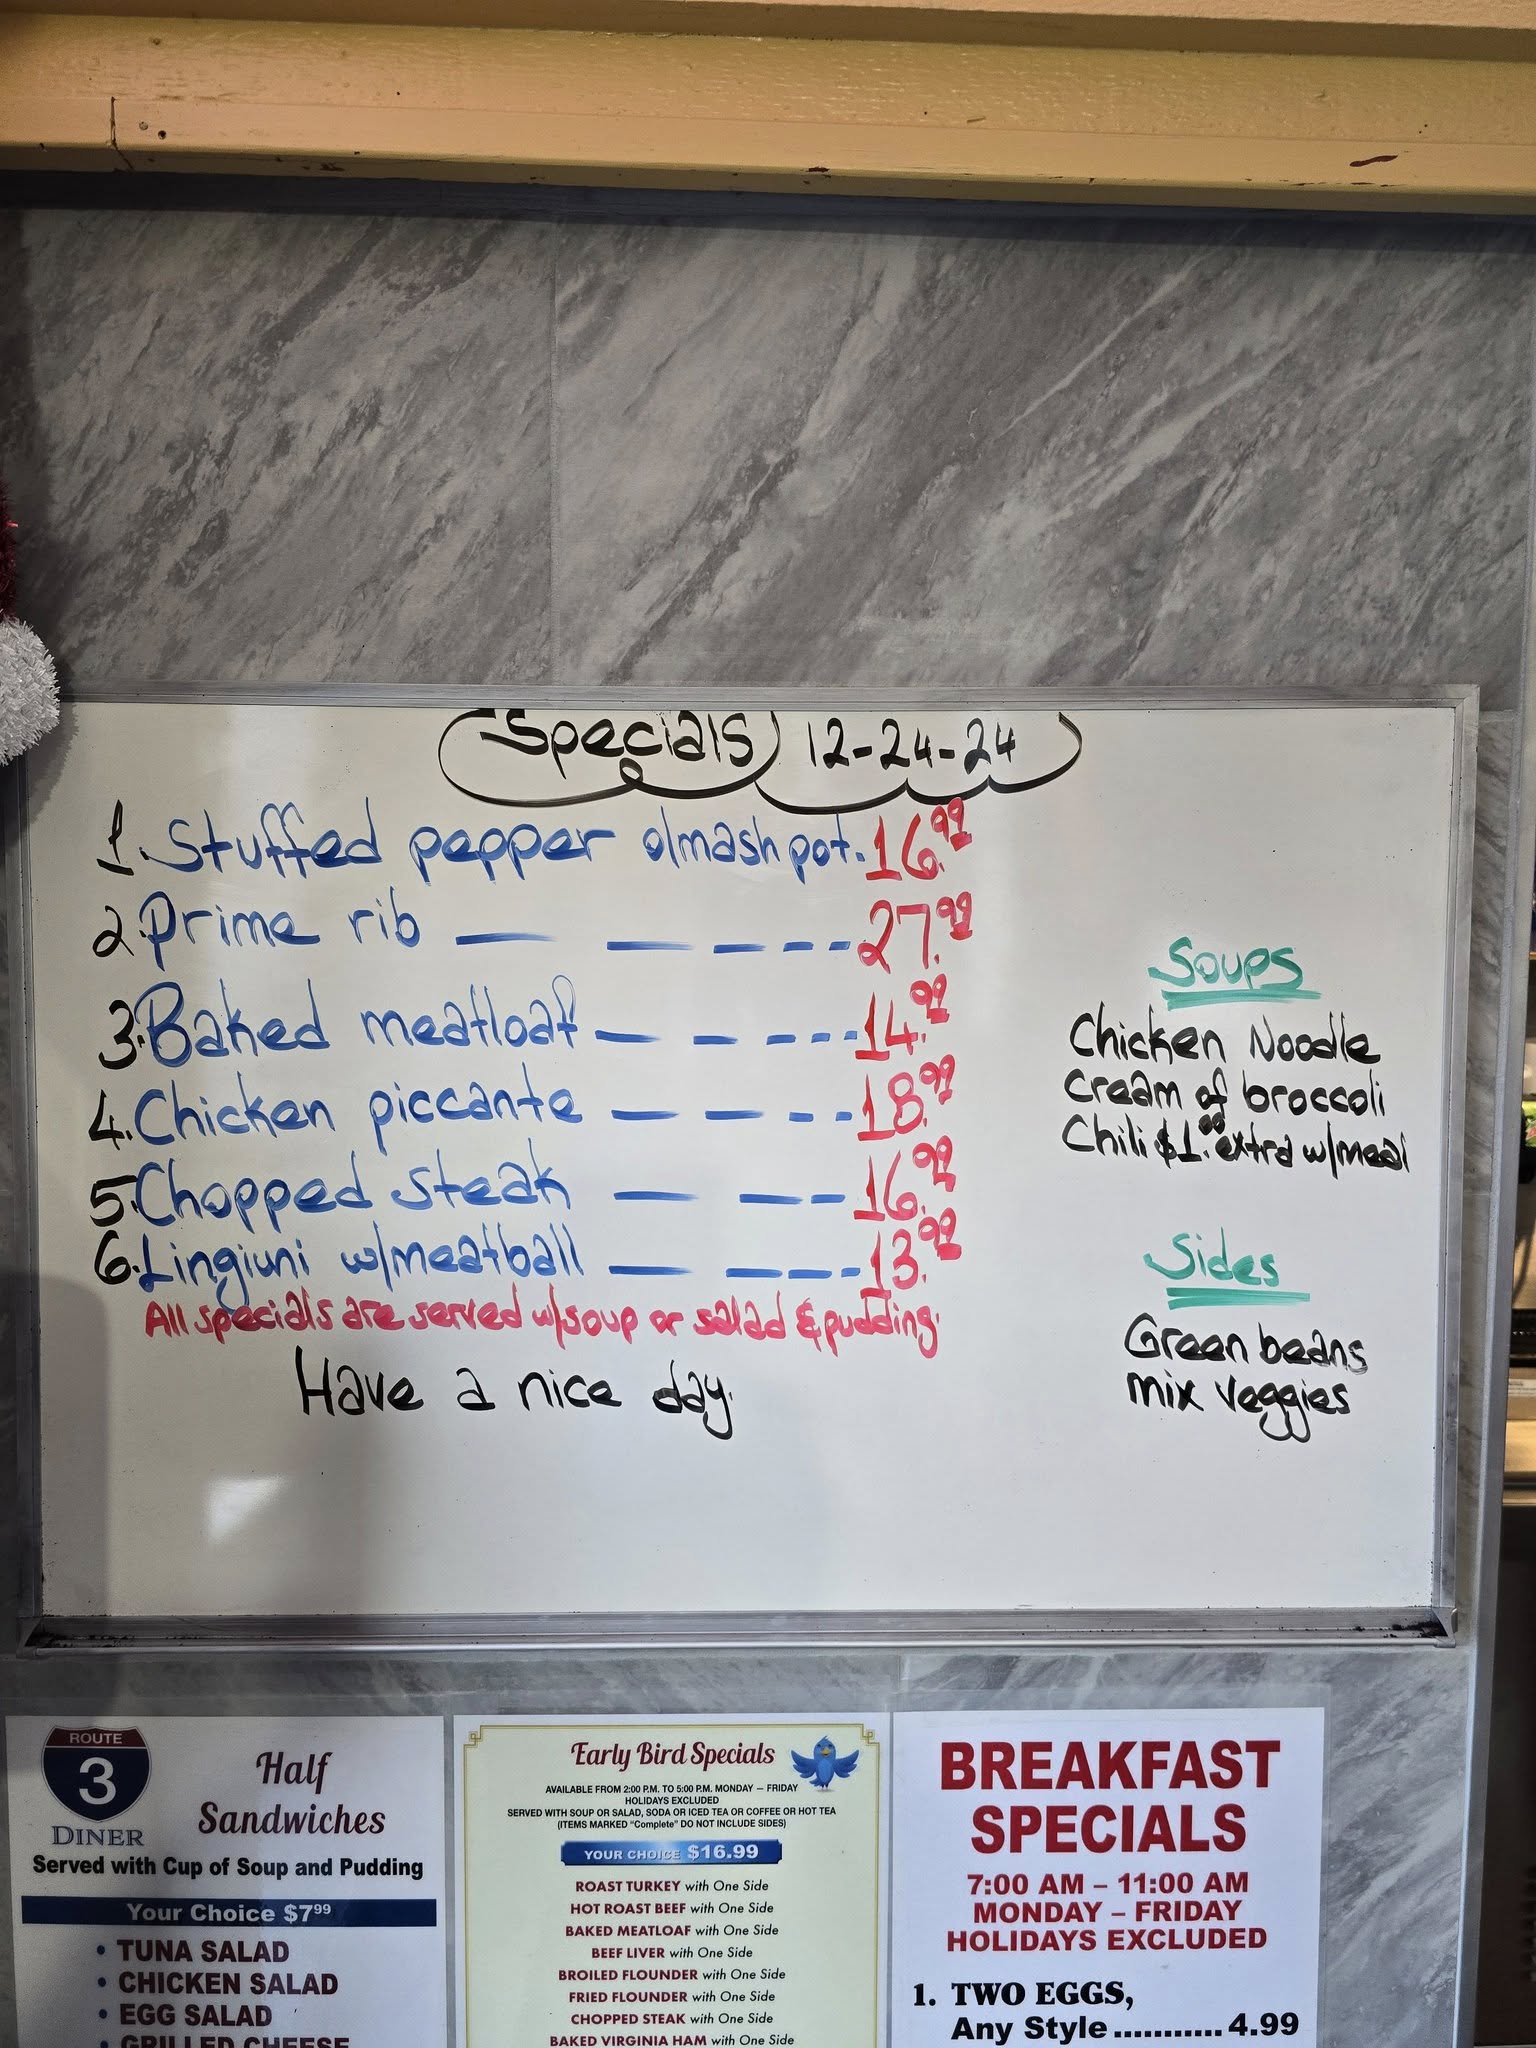 Specials 12-24-24
1. Stuffed pepper o/mash pot. 16.99
2. Prime rib 27.99
3. Baked meatloaf 14.99
4. Chicken piccante 18.99
5. Chopped steak 16.99
6. Lingiuni w/meatball 13.99
All specials are served w/soup or salad & pudding.
Have a nice day.
Soups
Chicken Noodle
Cream of broccoli
Chili $1.00 extra w/meal
Sides
Green beans
mix veggies
ROUTE
3
DINER
Half
Sandwiches
Served with Cup of Soup and Pudding
Your Choice $7.99
• TUNA SALAD
• CHICKEN SALAD
• EGG SALAD
• GRILLED CHEESE
Early Bird Specials
AVAILABLE FROM 2:00 P.M. TO 5:00 P.M. MONDAY – FRIDAY
HOLIDAYS EXCLUDED
SERVED WITH SOUP OR SALAD, SODA OR ICED TEA OR COFFEE OR HOT TEA
(ITEMS MARKED "Complete" DO NOT INCLUDE SIDES)
YOUR CHOICE $16.99
ROAST TURKEY with One Side
HOT ROAST BEEF with One Side
BAKED MEATLOAF with One Side
BEEF LIVER with One Side
BROILED FLOUNDER with One Side
FRIED FLOUNDER with One Side
CHOPPED STEAK with One Side
BAKED VIRGINIA HAM with One Side
BREAKFAST
SPECIALS
7:00 AM – 11:00 AM
MONDAY – FRIDAY
HOLIDAYS EXCLUDED
1. TWO EGGS,
Any Style ........... 4.99